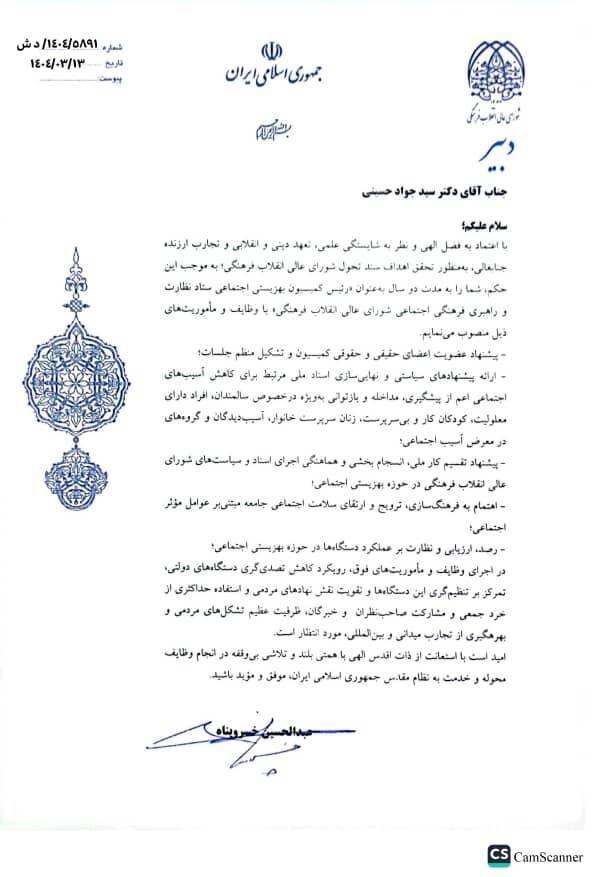 شماره ۱۴۰۴/۵۸۹۱/ د ش
تاریخ ۱۴۰۴/۰۳/۱۳
پیوست
جمهوری اسلامی ایران
بسم الله الرحمن الرحیم
شورای عالی انقلاب فرهنگی
دبیر
جناب آقای دکتر سید جواد حسینی
سلام علیکم؛
با اعتماد به فضل الهی و نظر به شایستگی علمی، تعهد دینی و انقلابی و تجارب ارزنده
جنابعالی، به‌منظور تحقق اهداف سند تحول شورای عالی انقلاب فرهنگی؛ به موجب این
حکم، شما را به مدت دو سال به‌عنوان «رئیس کمیسیون بهزیستی اجتماعی ستاد نظارت
و راهبری فرهنگی اجتماعی شورای عالی انقلاب فرهنگی» با وظایف و مأموریت‌های
ذیل منصوب می‌نمایم.
- پیشنهاد عضویت اعضای حقیقی و حقوقی کمیسیون و تشکیل منظم جلسات؛
- ارائه پیشنهادهای سیاستی و نهایی‌سازی اسناد ملی مرتبط برای کاهش آسیب‌های
اجتماعی اعم از پیشگیری، مداخله و بازتوانی به‌ویژه درخصوص سالمندان، افراد دارای
معلولیت، کودکان کار و بی‌سرپرست، زنان سرپرست خانوار، آسیب‌دیدگان و گروه‌های
در معرض آسیب اجتماعی؛
- پیشنهاد تقسیم کار ملی، انسجام بخشی و هماهنگی اجرای اسناد و سیاست‌های شورای
عالی انقلاب فرهنگی در حوزه بهزیستی اجتماعی؛
- اهتمام به فرهنگ‌سازی، ترویج و ارتقای سلامت اجتماعی جامعه مبتنی‌بر عوامل مؤثر
اجتماعی؛
- رصد، ارزیابی و نظارت بر عملکرد دستگاه‌ها در حوزه بهزیستی اجتماعی؛
در اجرای وظایف و مأموریت‌های فوق، رویکرد کاهش تصدی‌گری دستگاه‌های دولتی،
تمرکز بر تنظیم‌گری این دستگاه‌ها و تقویت نقش نهادهای مردمی و استفاده حداکثری از
خرد جمعی و مشارکت صاحب‌نظران و خبرگان، ظرفیت عظیم تشکل‌های مردمی و
بهره‌گیری از تجارب میدانی و بین‌المللی، مورد انتظار است.
امید است با استعانت از ذات اقدس الهی با همتی بلند و تلاشی بی‌وقفه در انجام وظایف
محوله و خدمت به نظام مقدس جمهوری اسلامی ایران، موفق و مؤید باشید.
عبدالحسین خسروپناه
CS CamScanner